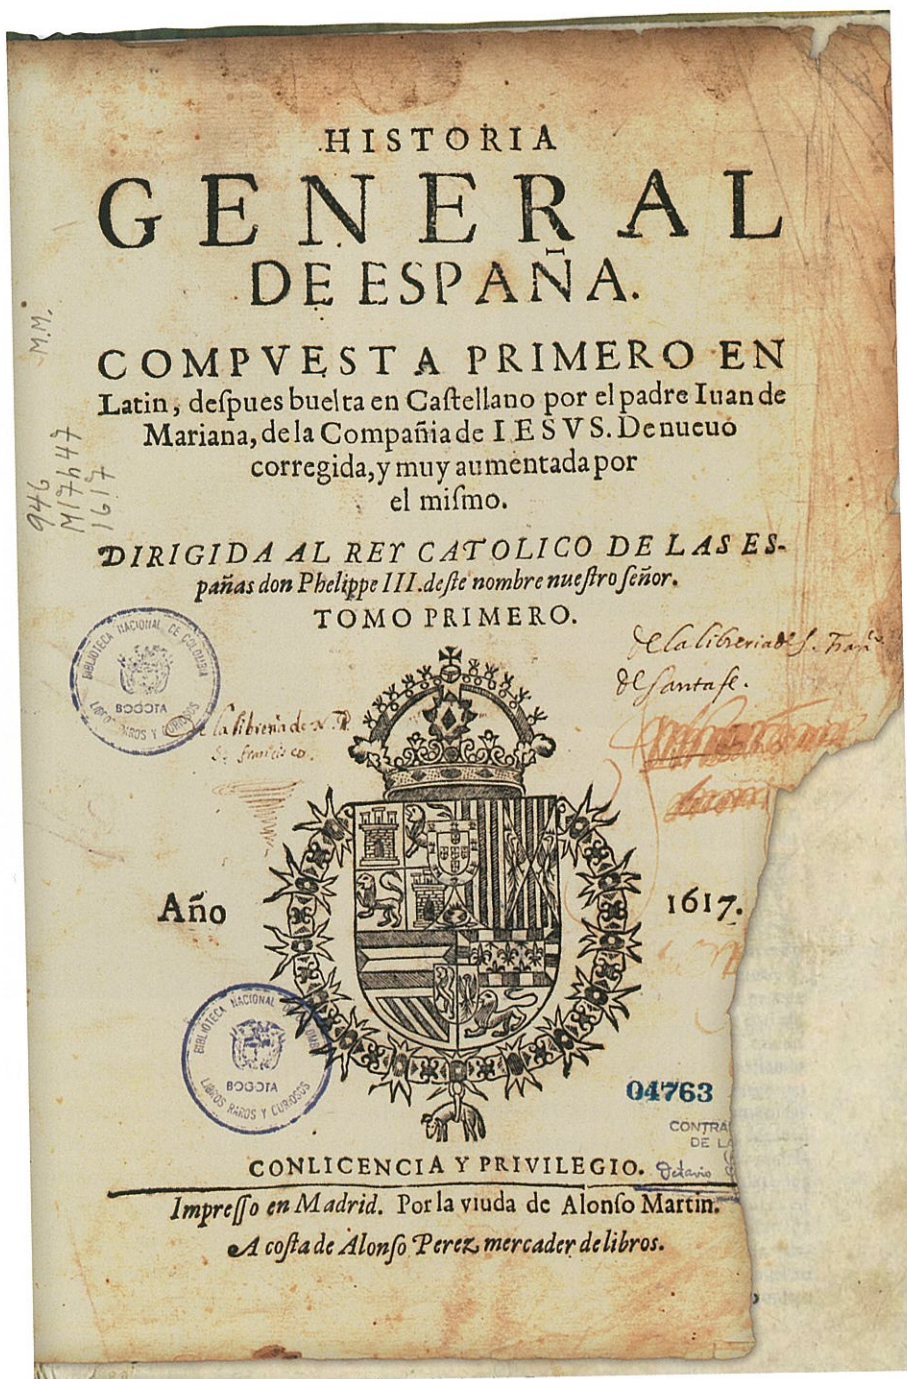 HISTORIA
GENERAL
DE ESPAÑA.
COMPVESTA PRIMERO EN
Latin, deſpues buelta en Caſtellano por el padre Iuan de
Mariana, de la Compañia de IESVS. De nueuo
corregida, y muy aumentada por
el miſmo.
DIRIGIDA AL REY CATOLICO DE LAS ES-
pañas don Phelippe III. deſte nombre nueſtro ſeñor.
TOMO PRIMERO.
M.M.
946
M17h47
1617
BIBLIOTECA NACIONAL DE COLOMBIA
BOGOTA
LIBROS RAROS Y CURIOSOS
de la libreria de S. Fran.co
de santa fe.
de la libreria de N. P.
S. francisco.
Año 1617.
BIBLIOTECA NACIONAL
BOGOTA
LIBROS RAROS Y CURIOSOS
04763
CONTRA
DE LA
Octavio
CON LICENCIA Y PRIVILEGIO.
Impreſſo en Madrid. Por la viuda de Alonſo Martin.
A coſta de Alonſo Perez mercader de libros.